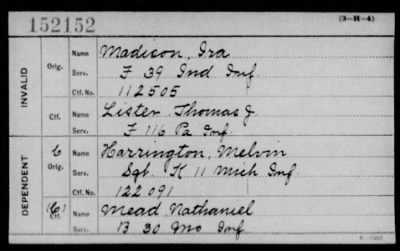 152152
(3-H-4)
INVALID
Orig.
Name Madison, Ira
Serv. F 39 Ind Inf
Ctf. No. 112505
Ctf.
Name Lister, Thomas J.
Serv. F 116 Pa Inf
DEPENDENT
C
Orig.
Name Harrington, Melvin
Serv. Sgt. K 11 Mich Inf
Ctf. No. 122091
(C)
Ctf.
Name Mead Nathaniel
Serv. B 30 Mo Inf